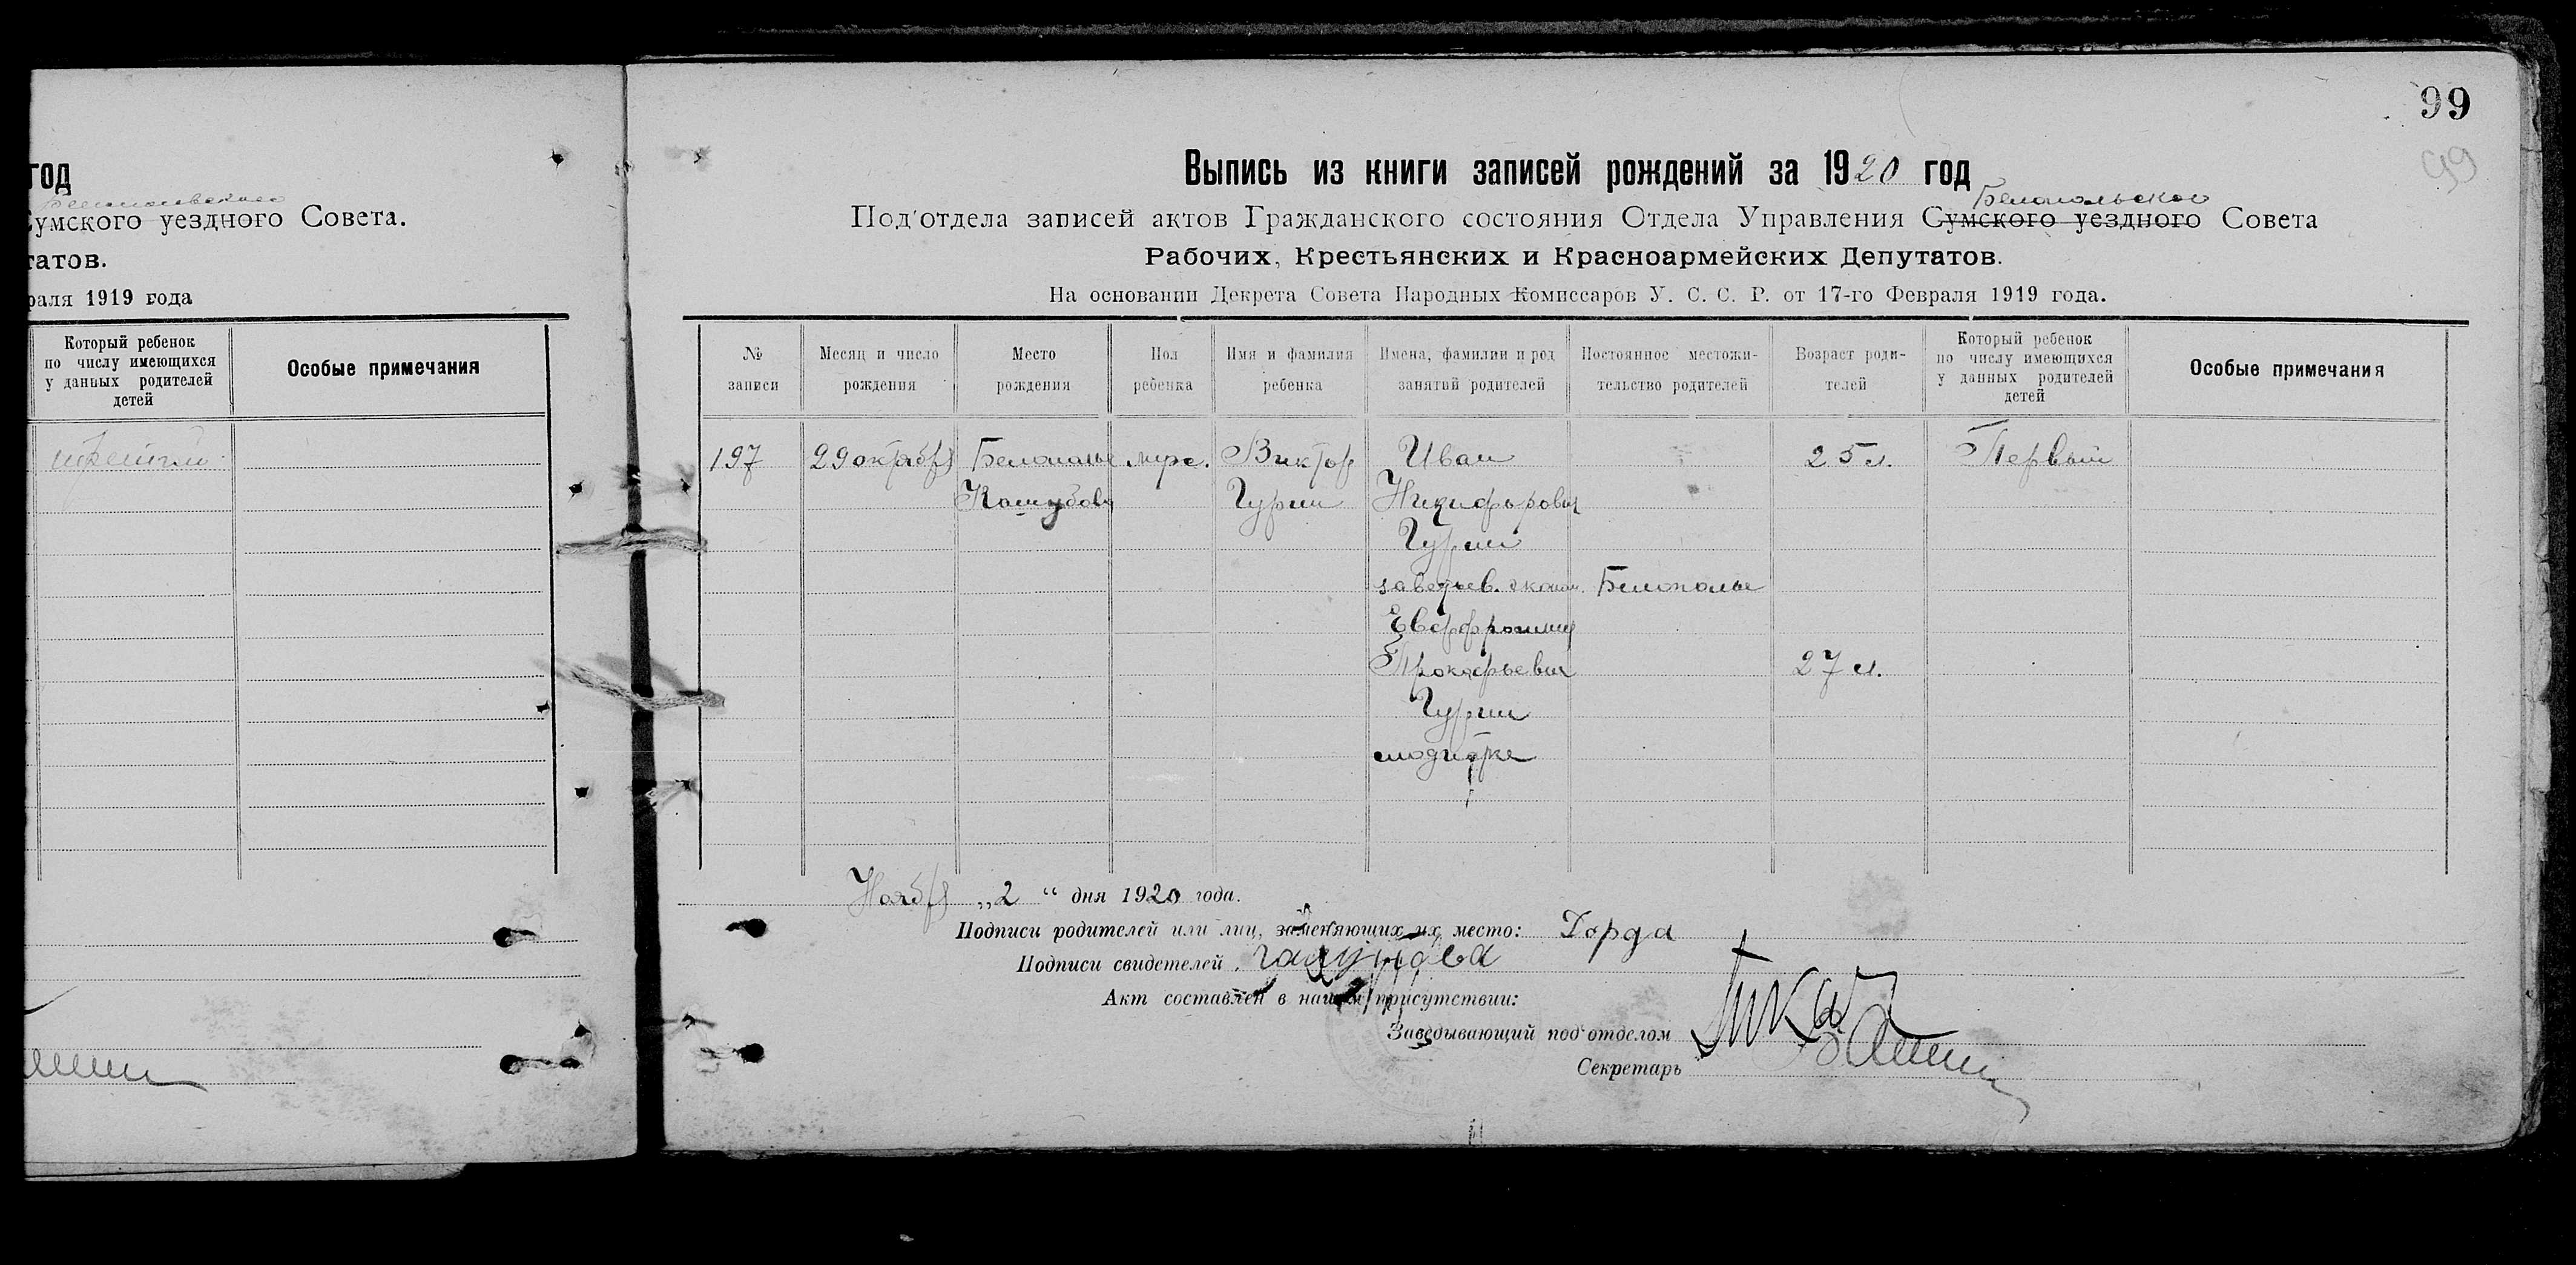 год
Сумского уездного Совета.
татов.
раля 1919 года
Который ребенок
по числу имеющихся
у данных родителей
детей
Особые примечания
третий
99
99
Выпись из книги записей рождений за 1920 год
Белопольского
Под'отдела записей актов Гражданского состояния Отдела Управления Сумского уездного Совета
Рабочих, Крестьянских и Красноармейских Депутатов.
На основании Декрета Совета Народных Комиссаров У. С. С. Р. от 17-го Февраля 1919 года.
№ записи
Месяц и число рождения
Место рождения
Пол ребенка
Имя и фамилия ребенка
Имена, фамилии и род занятий родителей
Постоянное местожительство родителей
Возраст родителей
Который ребенок
по числу имеющихся
у данных родителей
детей
Особые примечания
197 29 октября Белополье муж. Виктор Иван 25 л. Первый
Гурин Никифорович
Гурин
заведыв. эконом. Белополье
Евфросиния
Прокофьевна 27 л.
Гурин
модистка
Ноября „2“ дня 1920 года.
Подписи родителей или лиц, заменяющих их место: Горда
Подписи свидетелей
Акт составлен в нашем присутствии:
Заведывающий под'отделом
Секретарь